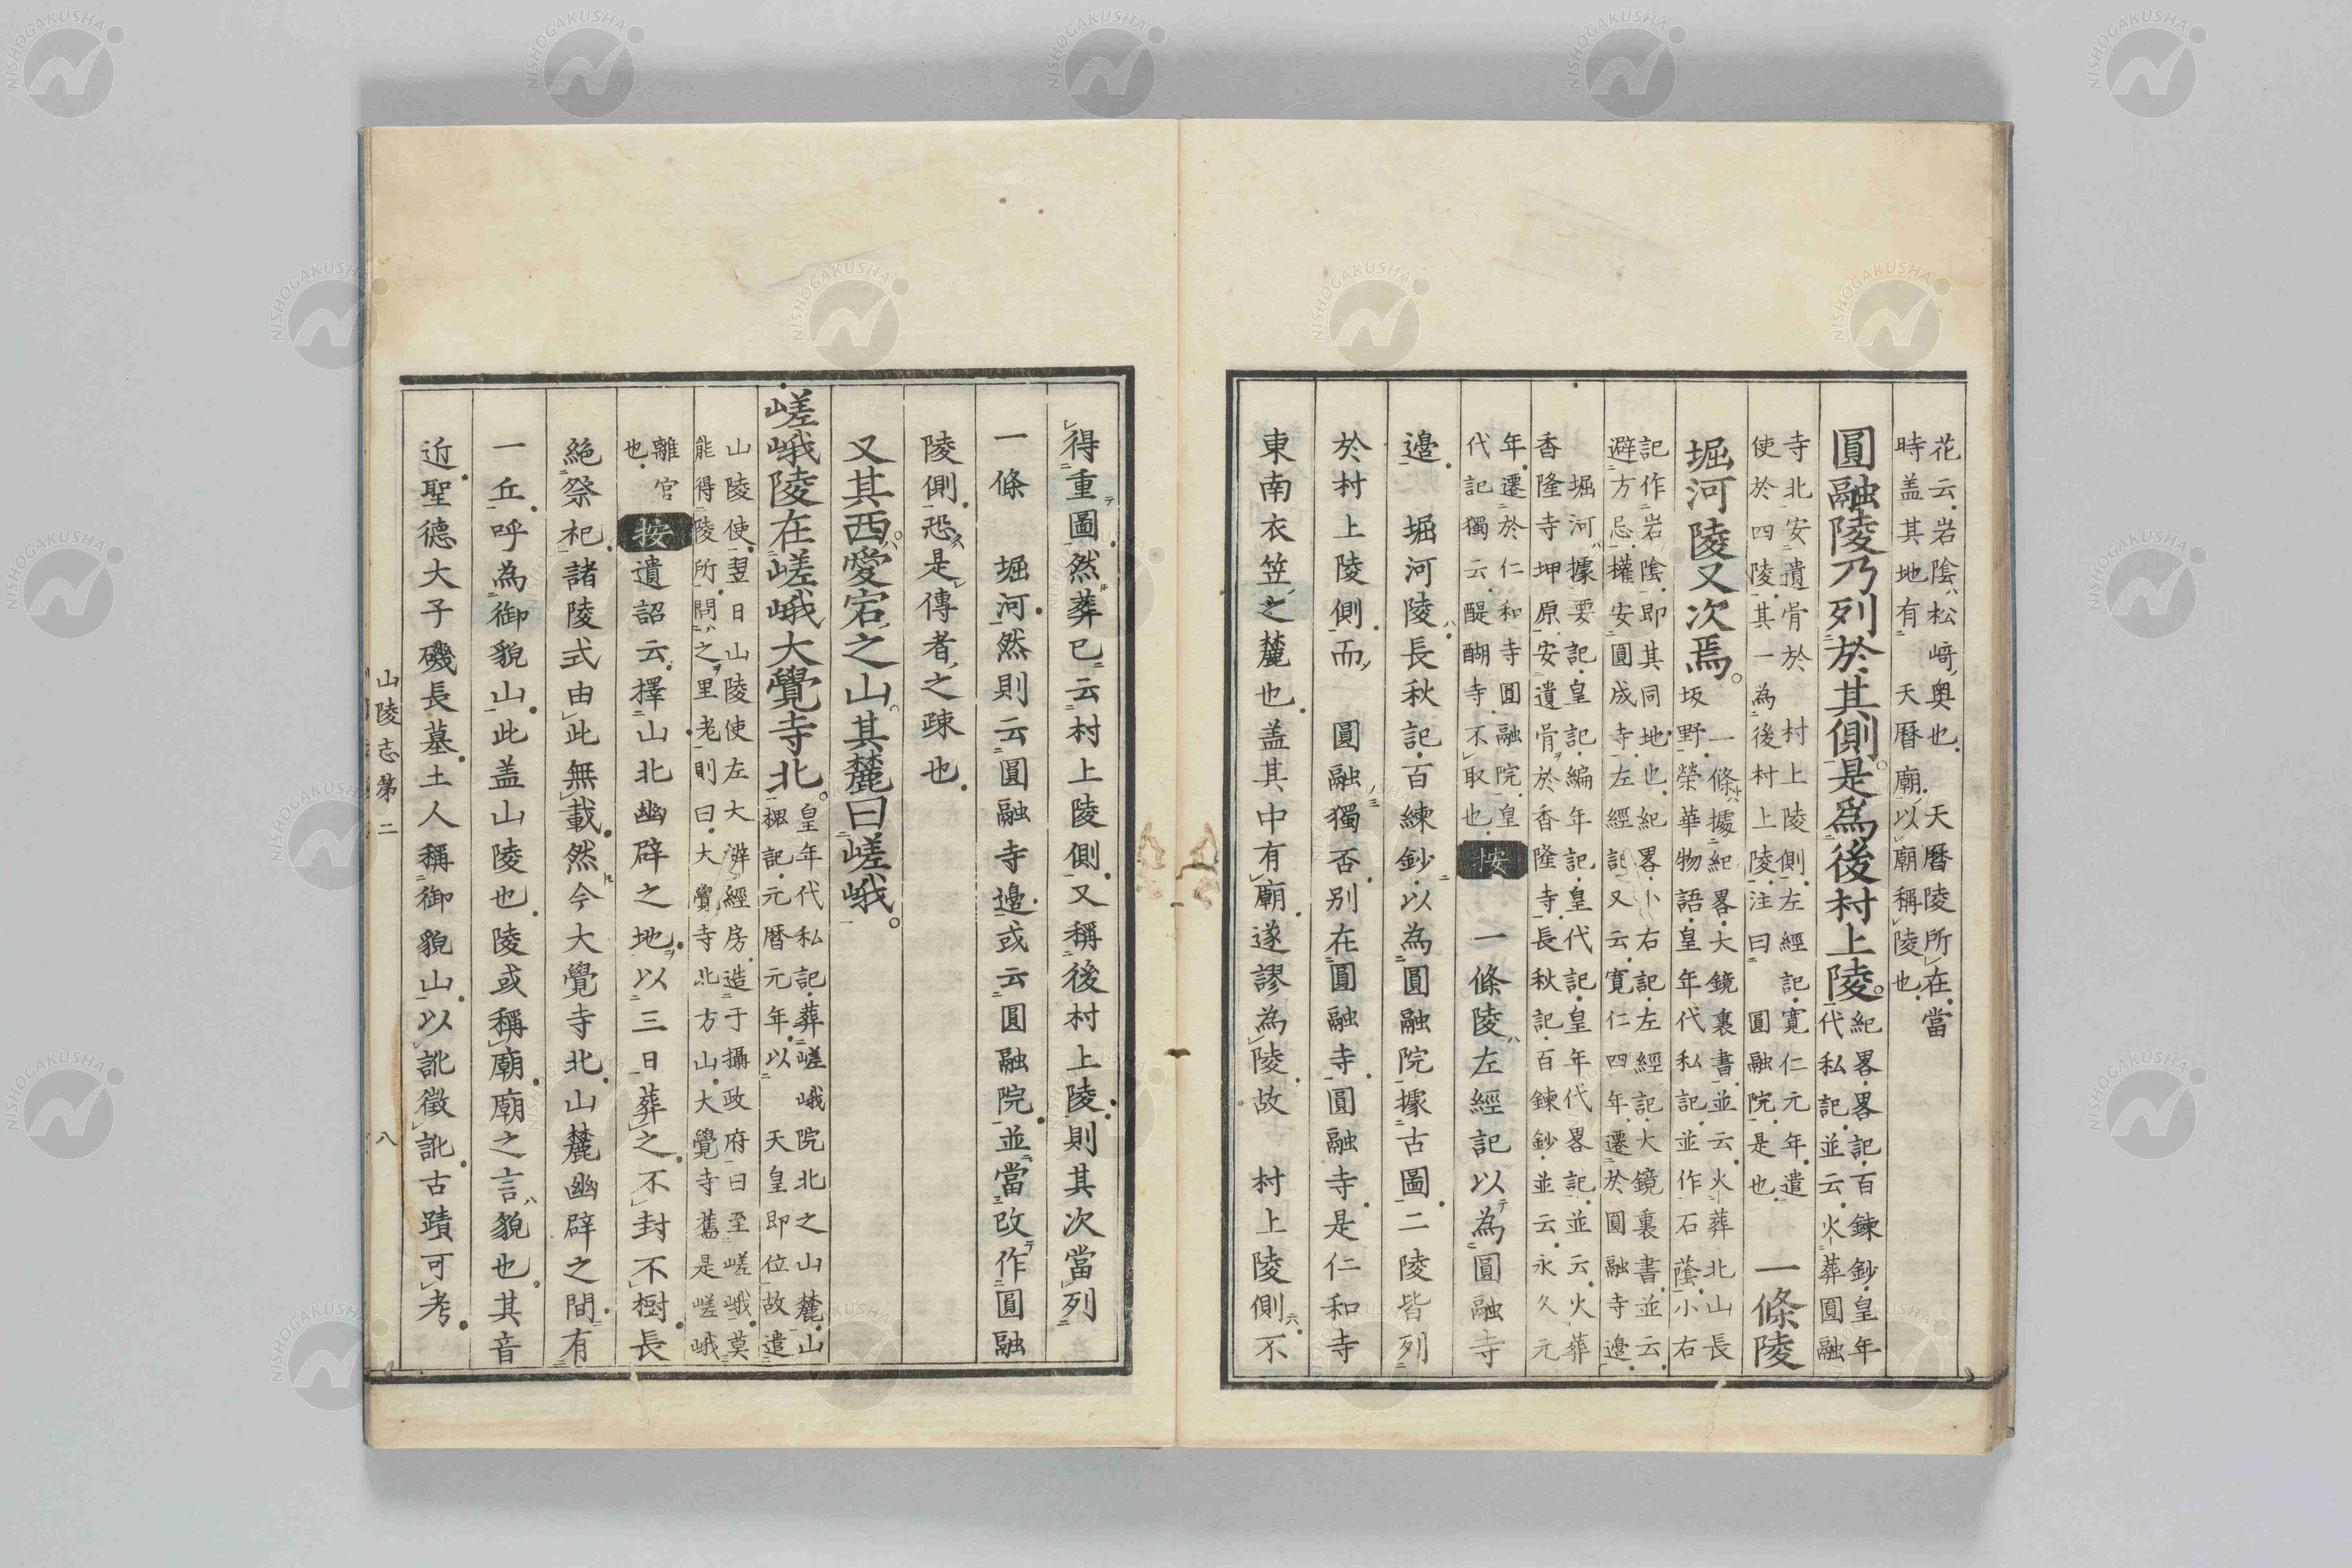 花云岩陰松﨑奥也 天曆陵所在當
時盖其地有 天曆廟以廟稱陵也
圓融陵乃列於其側。是爲後村上陵。
紀畧畧記百鍊鈔皇年
代私記並云火葬圓融
寺北安遺骨於 村上陵側左經記寛仁元年遣
使於四陵其一為後村上陵注曰 圓融院是也
一條陵
堀河陵又次焉。
一條據紀畧大鏡裏書並云火葬北山長
坂野榮華物語皇年代私記並作石蔭小右
記作岩陰即其同地也紀畧小右記左經記大鏡裏書並云
避方忌權安圓成寺左經記又云寛仁四年遷於圓融寺邊
堀河據要記皇記編年記皇代記皇年代畧記並云火葬
香隆寺坤原安遺骨於香隆寺長秋記百鍊鈔並云永久元
年遷於仁和寺圓融院皇
代記獨云醍醐寺不取也
按 一條陵左經記以為圓融寺
邊 堀河陵長秋記百練鈔以為圓融院據古圖二陵皆列
於村上陵側而 圓融獨否別在圓融寺圓融寺是仁和寺
東南衣笠之麓也盖其中有廟遂謬為陵故 村上陵側不
得重圖然葬已云村上陵側又稱後村上陵則其次當列
一條 堀河然則云圓融寺邊或云圓融院並當改作圓融
陵側恐是傳者之疎也
又其西愛宕之山。其麓曰嵯峨。
嵯峨陵在嵯峨大覺寺北。
皇年代私記葬嵯峨院北之山麓山
槐記元曆元年以 天皇即位故遣
山陵使翌日山陵使左大辨經房造于攝政府曰至嵯峨莫
能得陵所問之里老則曰大覺寺北方山大覺寺舊是嵯峨
離宮
也
按遺詔云擇山北幽辟之地以三日葬之不封不樹長
絶祭祀諸陵式由此無載然今大覺寺北山麓幽辟之間有
一丘呼為御貌山此盖山陵也陵或稱廟廟之言貌也其音
近聖德大子磯長墓土人稱御貌山以訛徵訛古蹟可考
山陵志第二
八
NISHOGAKUSHA